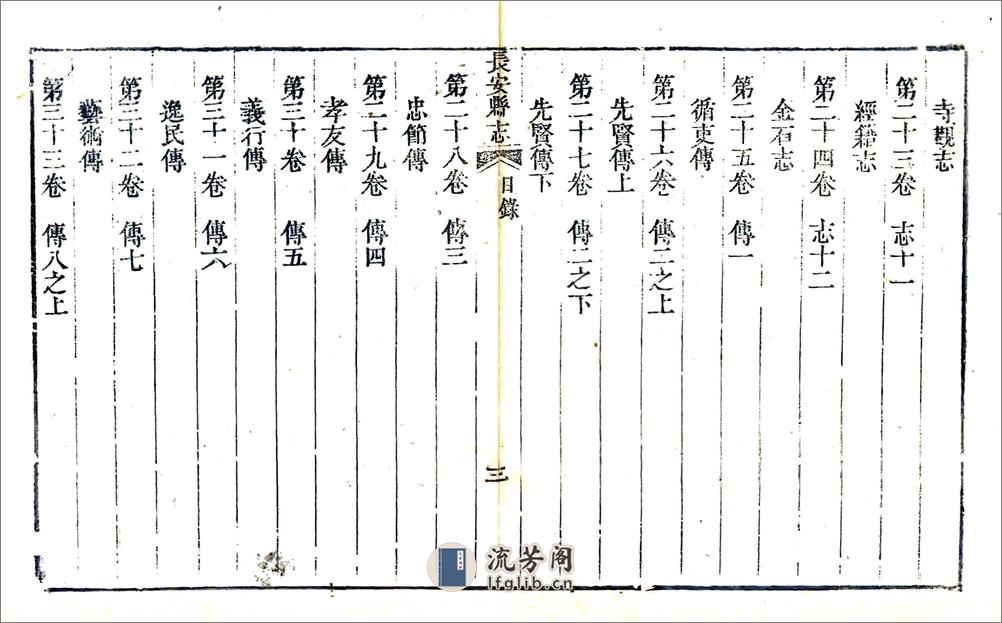 寺觀志
第二十三卷　志十一
經籍志
第二十四卷　志十二
金石志
第二十五卷　傳一
循吏傳
第二十六卷　傳二之上
先賢傳上
第二十七卷　傳二之下
先賢傳下
長安縣志　目錄
三
第二十八卷　傳三
忠節傳
第二十九卷　傳四
孝友傳
第三十卷　傳五
義行傳
第三十一卷　傳六
逸民傳
第三十二卷　傳七
藝術傳
第三十三卷　傳八之上
流芳阁
lfglib.cn